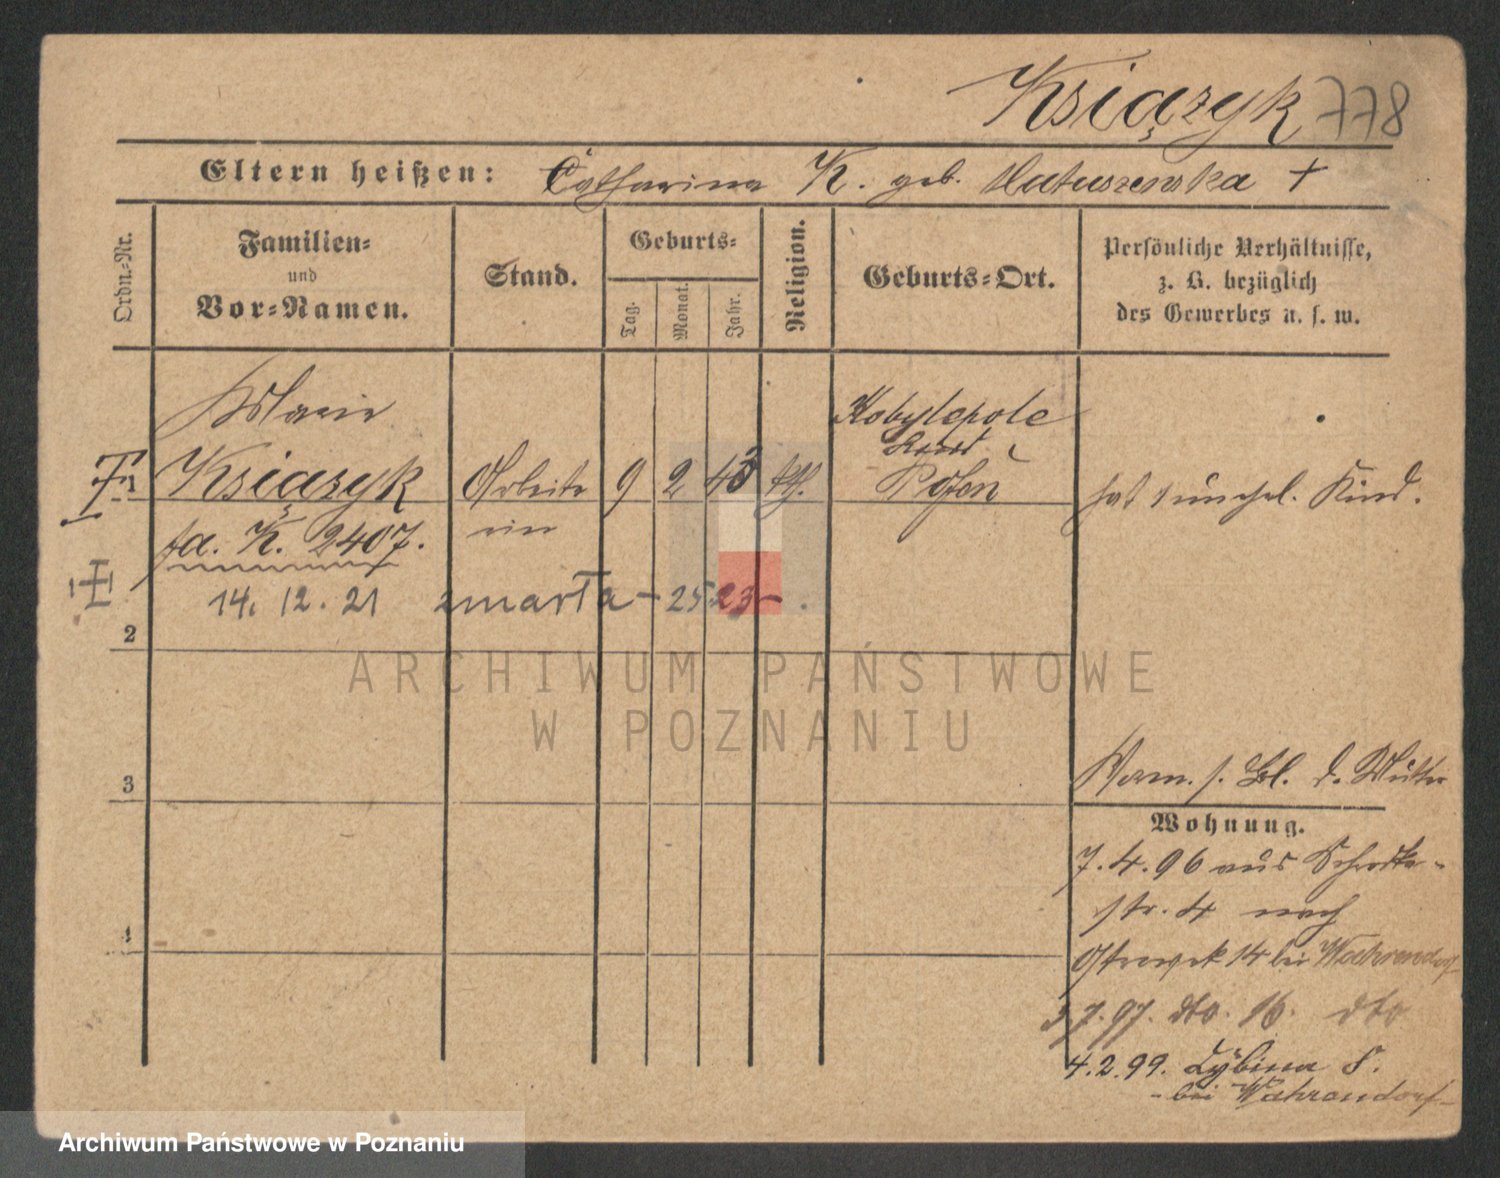 Książyk 778
Eltern heißen: Catharina K. geb. Matuszewska +
Ordn.-Nr.
Familien-
und
Vor-Namen.
Stand.
Geburts-
Tag.
Monat.
Jahr.
Religion.
Geburts-Ort.
Persönliche Verhältnisse,
z. B. bezüglich
des Gewerbes u. s. w.
Marie
Książyk
Arbeite
rin
9 2 43 kth.
Kobylepole
Posen
hat 1 unehel. Kind.
fa. K. 2407.
14. 12. 21 zmarła - 25.23 - .
2
3
4
Verm. s. Bl. d. Mutter
Wohnung.
7.4.96 aus Schrodka-
str. 4 nach
Ostrowek 14 bei Wahrendorf
3.7.97. dto. 16. dto
4.2.99. Cybina 8.
- bei Wahrendorf -
ARCHIWUM PAŃSTWOWE
W POZNANIU
Archiwum Państwowe w Poznaniu